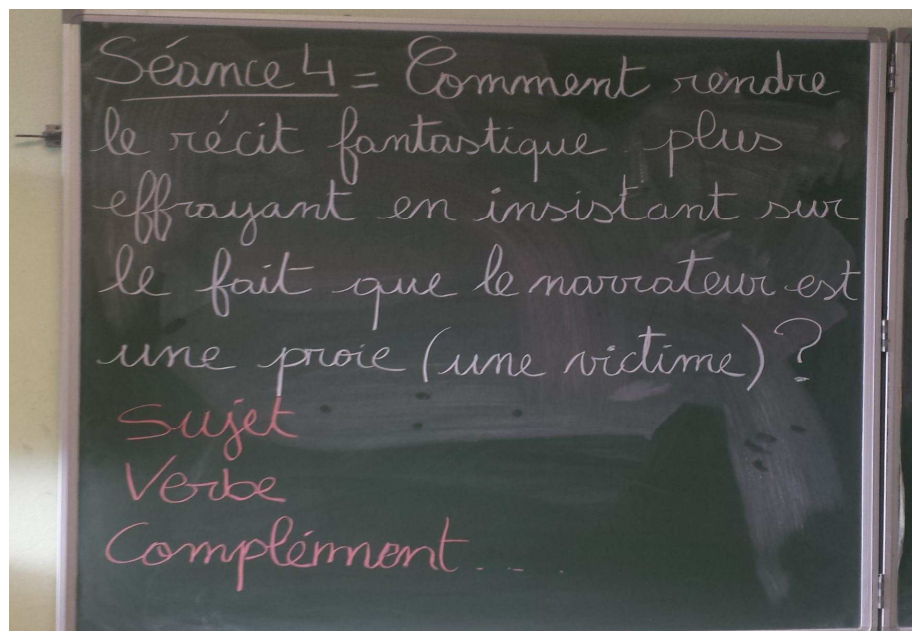 Séance 4 = Comment rendre
le récit fantastique plus
effrayant en insistant sur
le fait que le narrateur est
une proie (une victime) ?
Sujet
Verbe
Complément.....